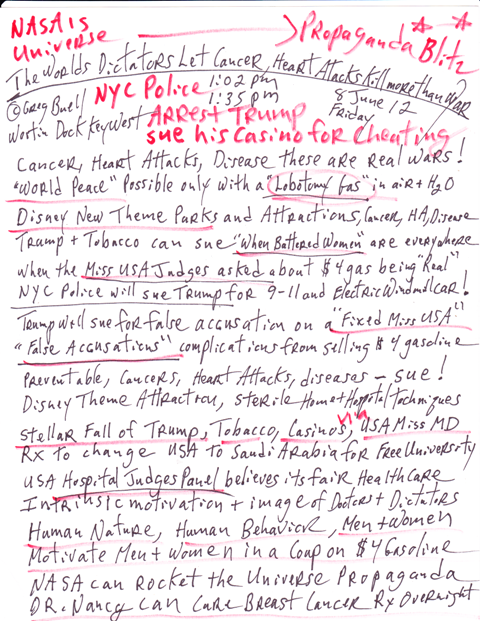 NASA is
Universe
Propaganda
Blitz
The Worlds Dictators Let Cancer, Heart Attacks Kill more than War
@ Greg Buell
NYC Police
1:02 pm
1:35 pm
8 June 12
Friday
Westin Dock Key West
Arrest Trump
sue his Casino for Cheating
Cancer, Heart Attacks, Disease these are Real Wars!
"World Peace" Possible only with a "Lobotomy Gas" in air + H2O
Disney New Theme Parks and Attractions, Cancer, HA, Disease
Trump + Tobacco can sue "When Battered Women" are everywhere
when the Miss USA Judges asked about $4 gas being "Real"
NYC Police will sue Trump for 9-11 and Electric Windmill car!
Trump will sue for false accusation on a "Fixed Miss USA"
"False Accusations" complications from selling $4 gasoline
Preventable, Cancers, Heart Attacks, diseases – sue!
Disney Theme Attraction, Sterile Home + Hospital techniques
Stellar Fall of Trump, Tobacco, Casino's, USA Miss MD
Rx to change USA to Saudi Arabia for Free University
USA Hospital Judges Panel believes its fair Health Care
Intrinsic motivation + image of Doctors + Dictators
Human Nature, Human Behavior, Men + Women
Motivate Men + Women in a Coup on $4 Gasoline
NASA can Rocket the Universe Propaganda
DR. Nancy can Cure Breast Cancer Rx Overnight